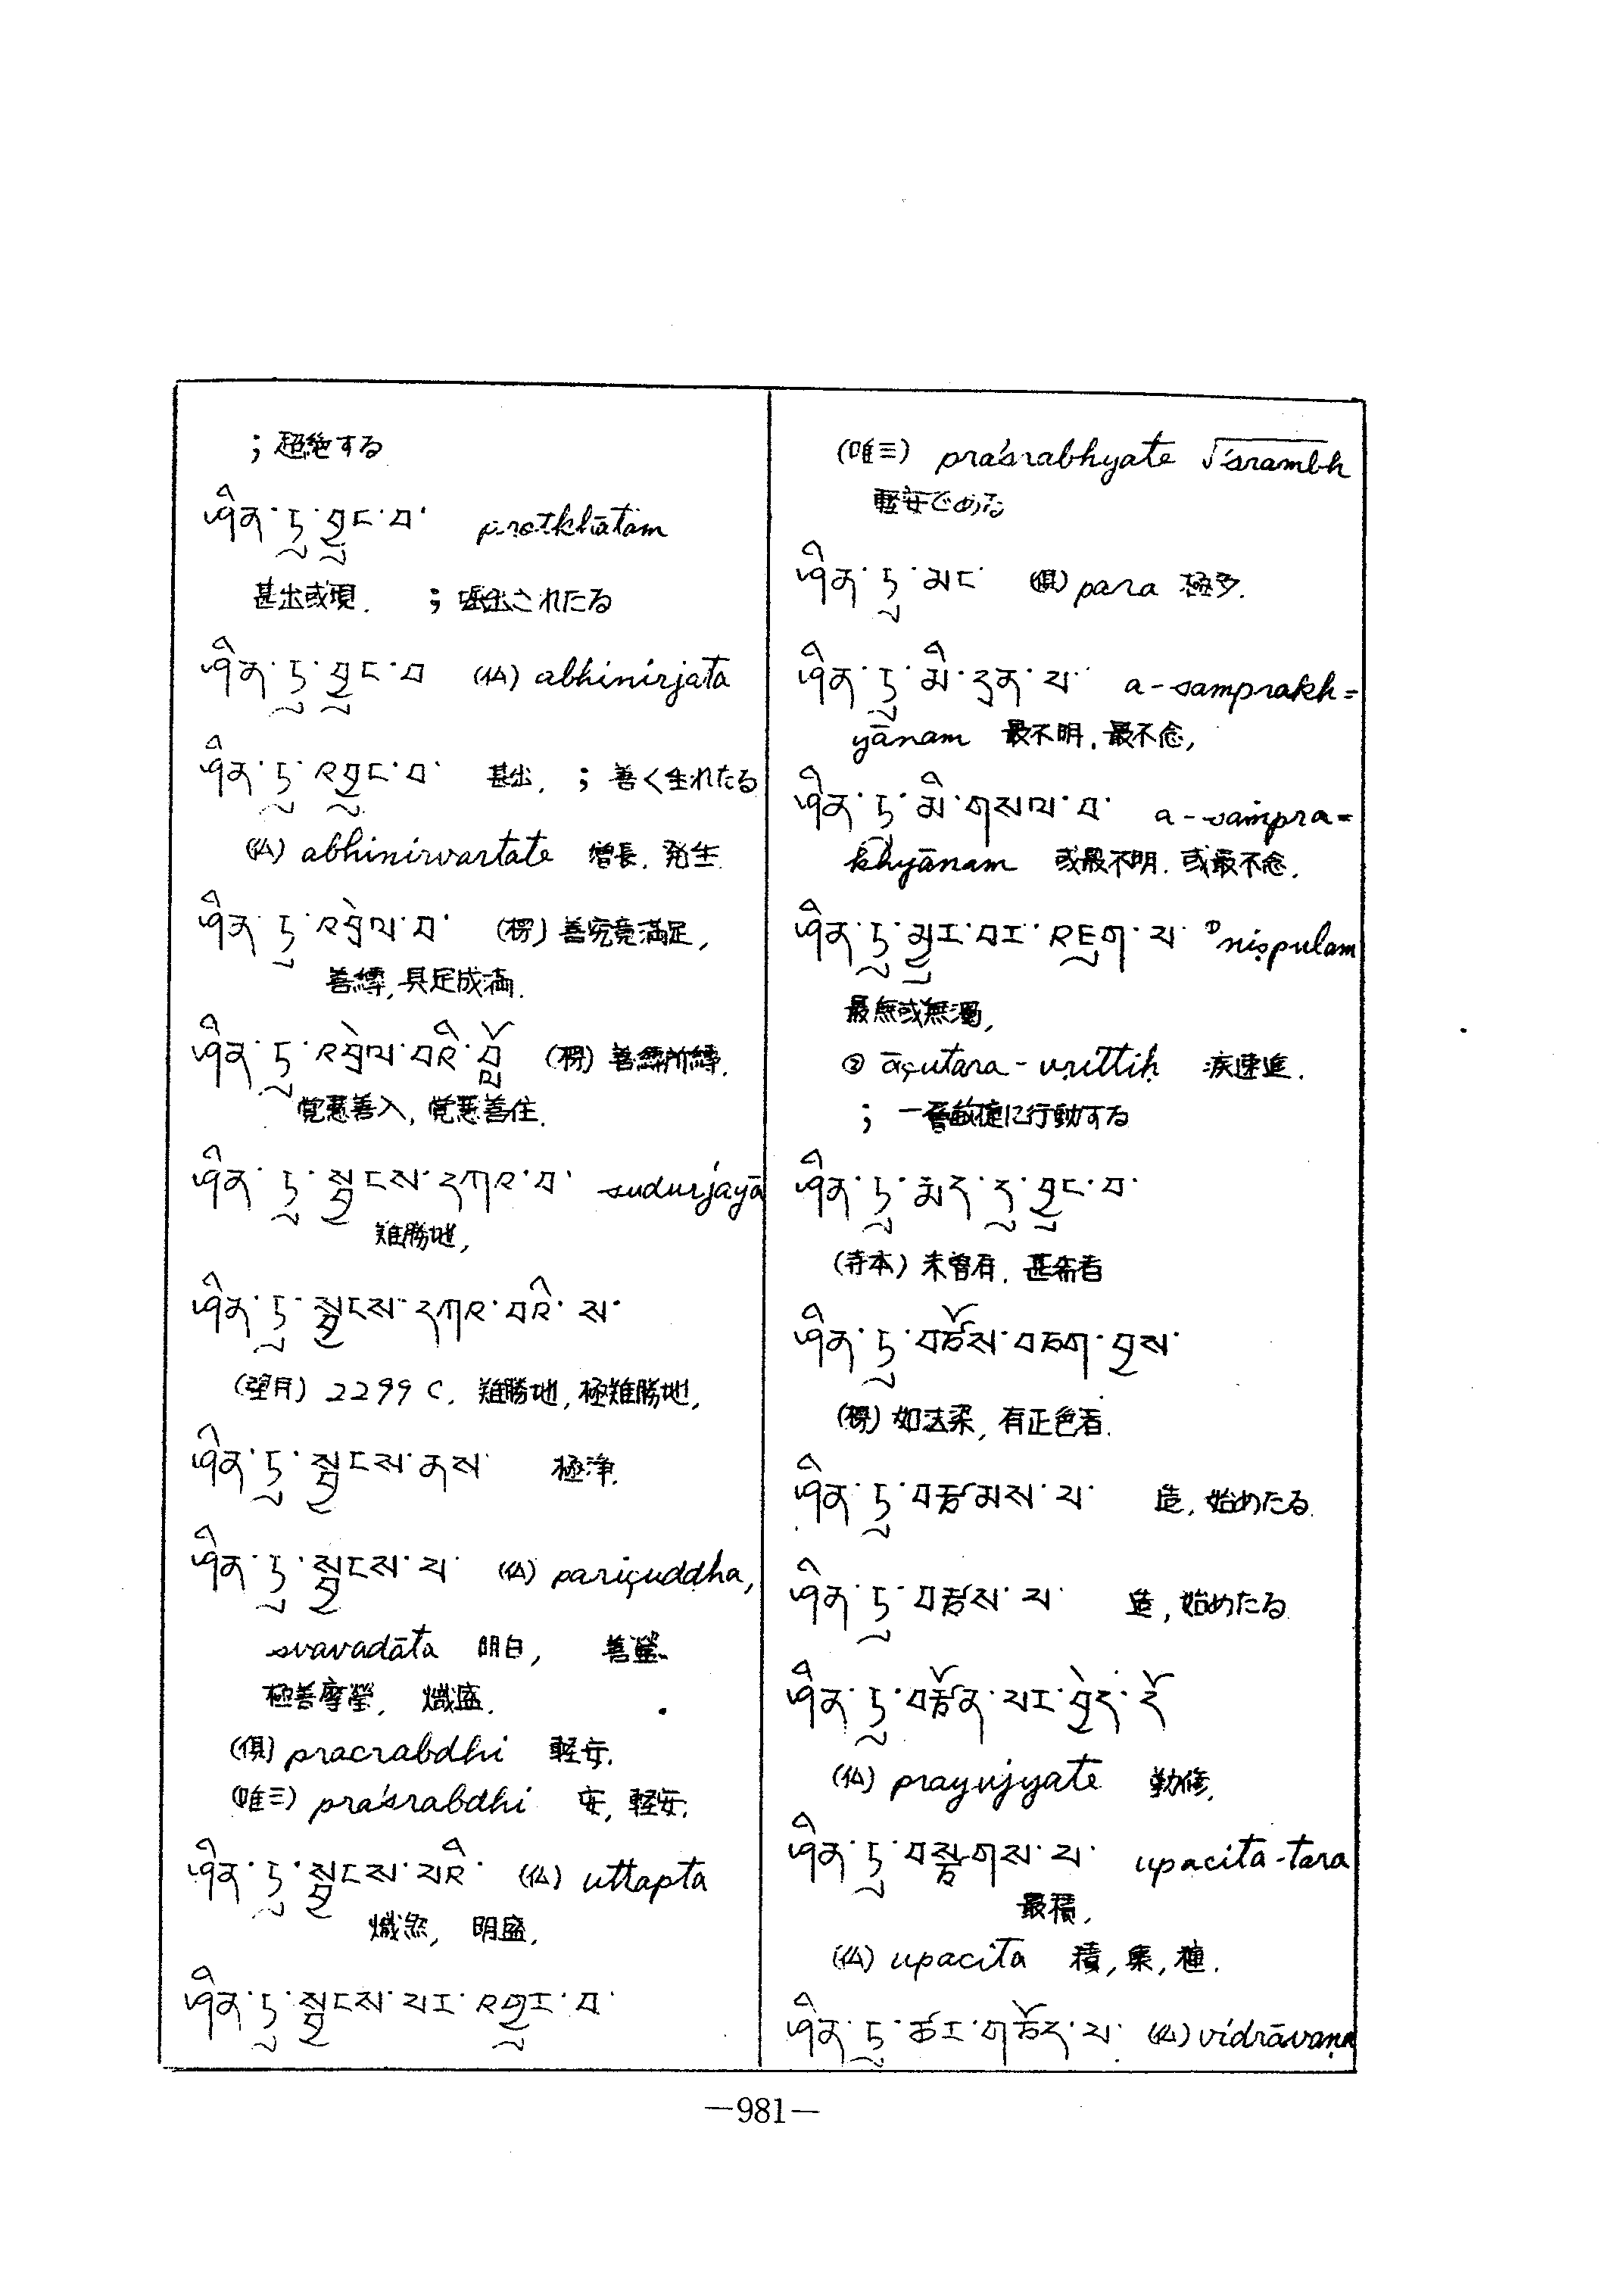 ；超絶する
ཤིན་ཏུ་བྱུང་བ་ protkhātam
甚出或現. ；掘出されたる
ཤིན་ཏུ་བྱུང་བ (仏) abhinirjata
ཤིན་ཏུ་འབྱུང་བ་ 甚出. ；善く生れたる
(仏) abhinirvartate 増長. 発生
ཤིན་ཏུ་འབྲེལ་བ་ (楞) 善究竟満足,
善縛, 具足成満.
ཤིན་ཏུ་འབྲེལ་བའི་བློ (楞) 善縛所縛.
覚慧善入, 覚慧善住.
ཤིན་ཏུ་སྦྱངས་དཀའ་བ་ sudurjayā
難勝地,
ཤིན་ཏུ་སྦྱངས་དཀའ་བའི་ས་
(望月) 2299 C. 難勝地, 極難勝地,
ཤིན་ཏུ་སྦྱངས་ནས་ 極浄.
ཤིན་ཏུ་སྦྱངས་པ་ (仏) pariçuddha,
svavadāta 明白, 善瑩
極善摩瑩, 熾盛.
(倶) pracrabdhi 軽安.
(唯三) praśrabdhi 安, 軽安.
ཤིན་ཏུ་སྦྱངས་པའི་ (仏) uttapta
熾然, 明盛,
ཤིན་ཏུ་སྦྱངས་པར་འགྱུར་བ་
(唯三) praśrabhyate √śrambh
軽安である
ཤིན་ཏུ་མང་ (倶) para 極多.
ཤིན་ཏུ་མི་དྲན་པ་ a-samprakh=
yānam 最不明, 最不念,
ཤིན་ཏུ་མི་གསལ་བ་ a-saṁpra=
khyānam 或最不明. 或最不念.
ཤིན་ཏུ་མྱུར་བར་འཇུག་པ་ ① niṣpulam
最無或無濁,
② āçutara-vṛittiḥ 疾速進.
； 一層敏捷に行動する
ཤིན་ཏུ་རྨད་དུ་བྱུང་བ་
(寺本) 未曾有. 甚希有
ཤིན་ཏུ་བཙོས་བཅག་བྱས་
(楞) 如法染, 有正色者.
ཤིན་ཏུ་བརྩམས་པ་ 造, 始めたる.
ཤིན་ཏུ་བརྩས་པ་ 造, 始めたる
ཤིན་ཏུ་བརྩོན་པར་བྱེད་དོ
(仏) prayujyate 勤修.
ཤིན་ཏུ་བསྩགས་པ་ upacita-tara
最積,
(仏) upacita 積, 集, 種.
ཤིན་ཏུ་ཚར་གཅོད་པ་ (仏) vidrāvaṇa
—981—